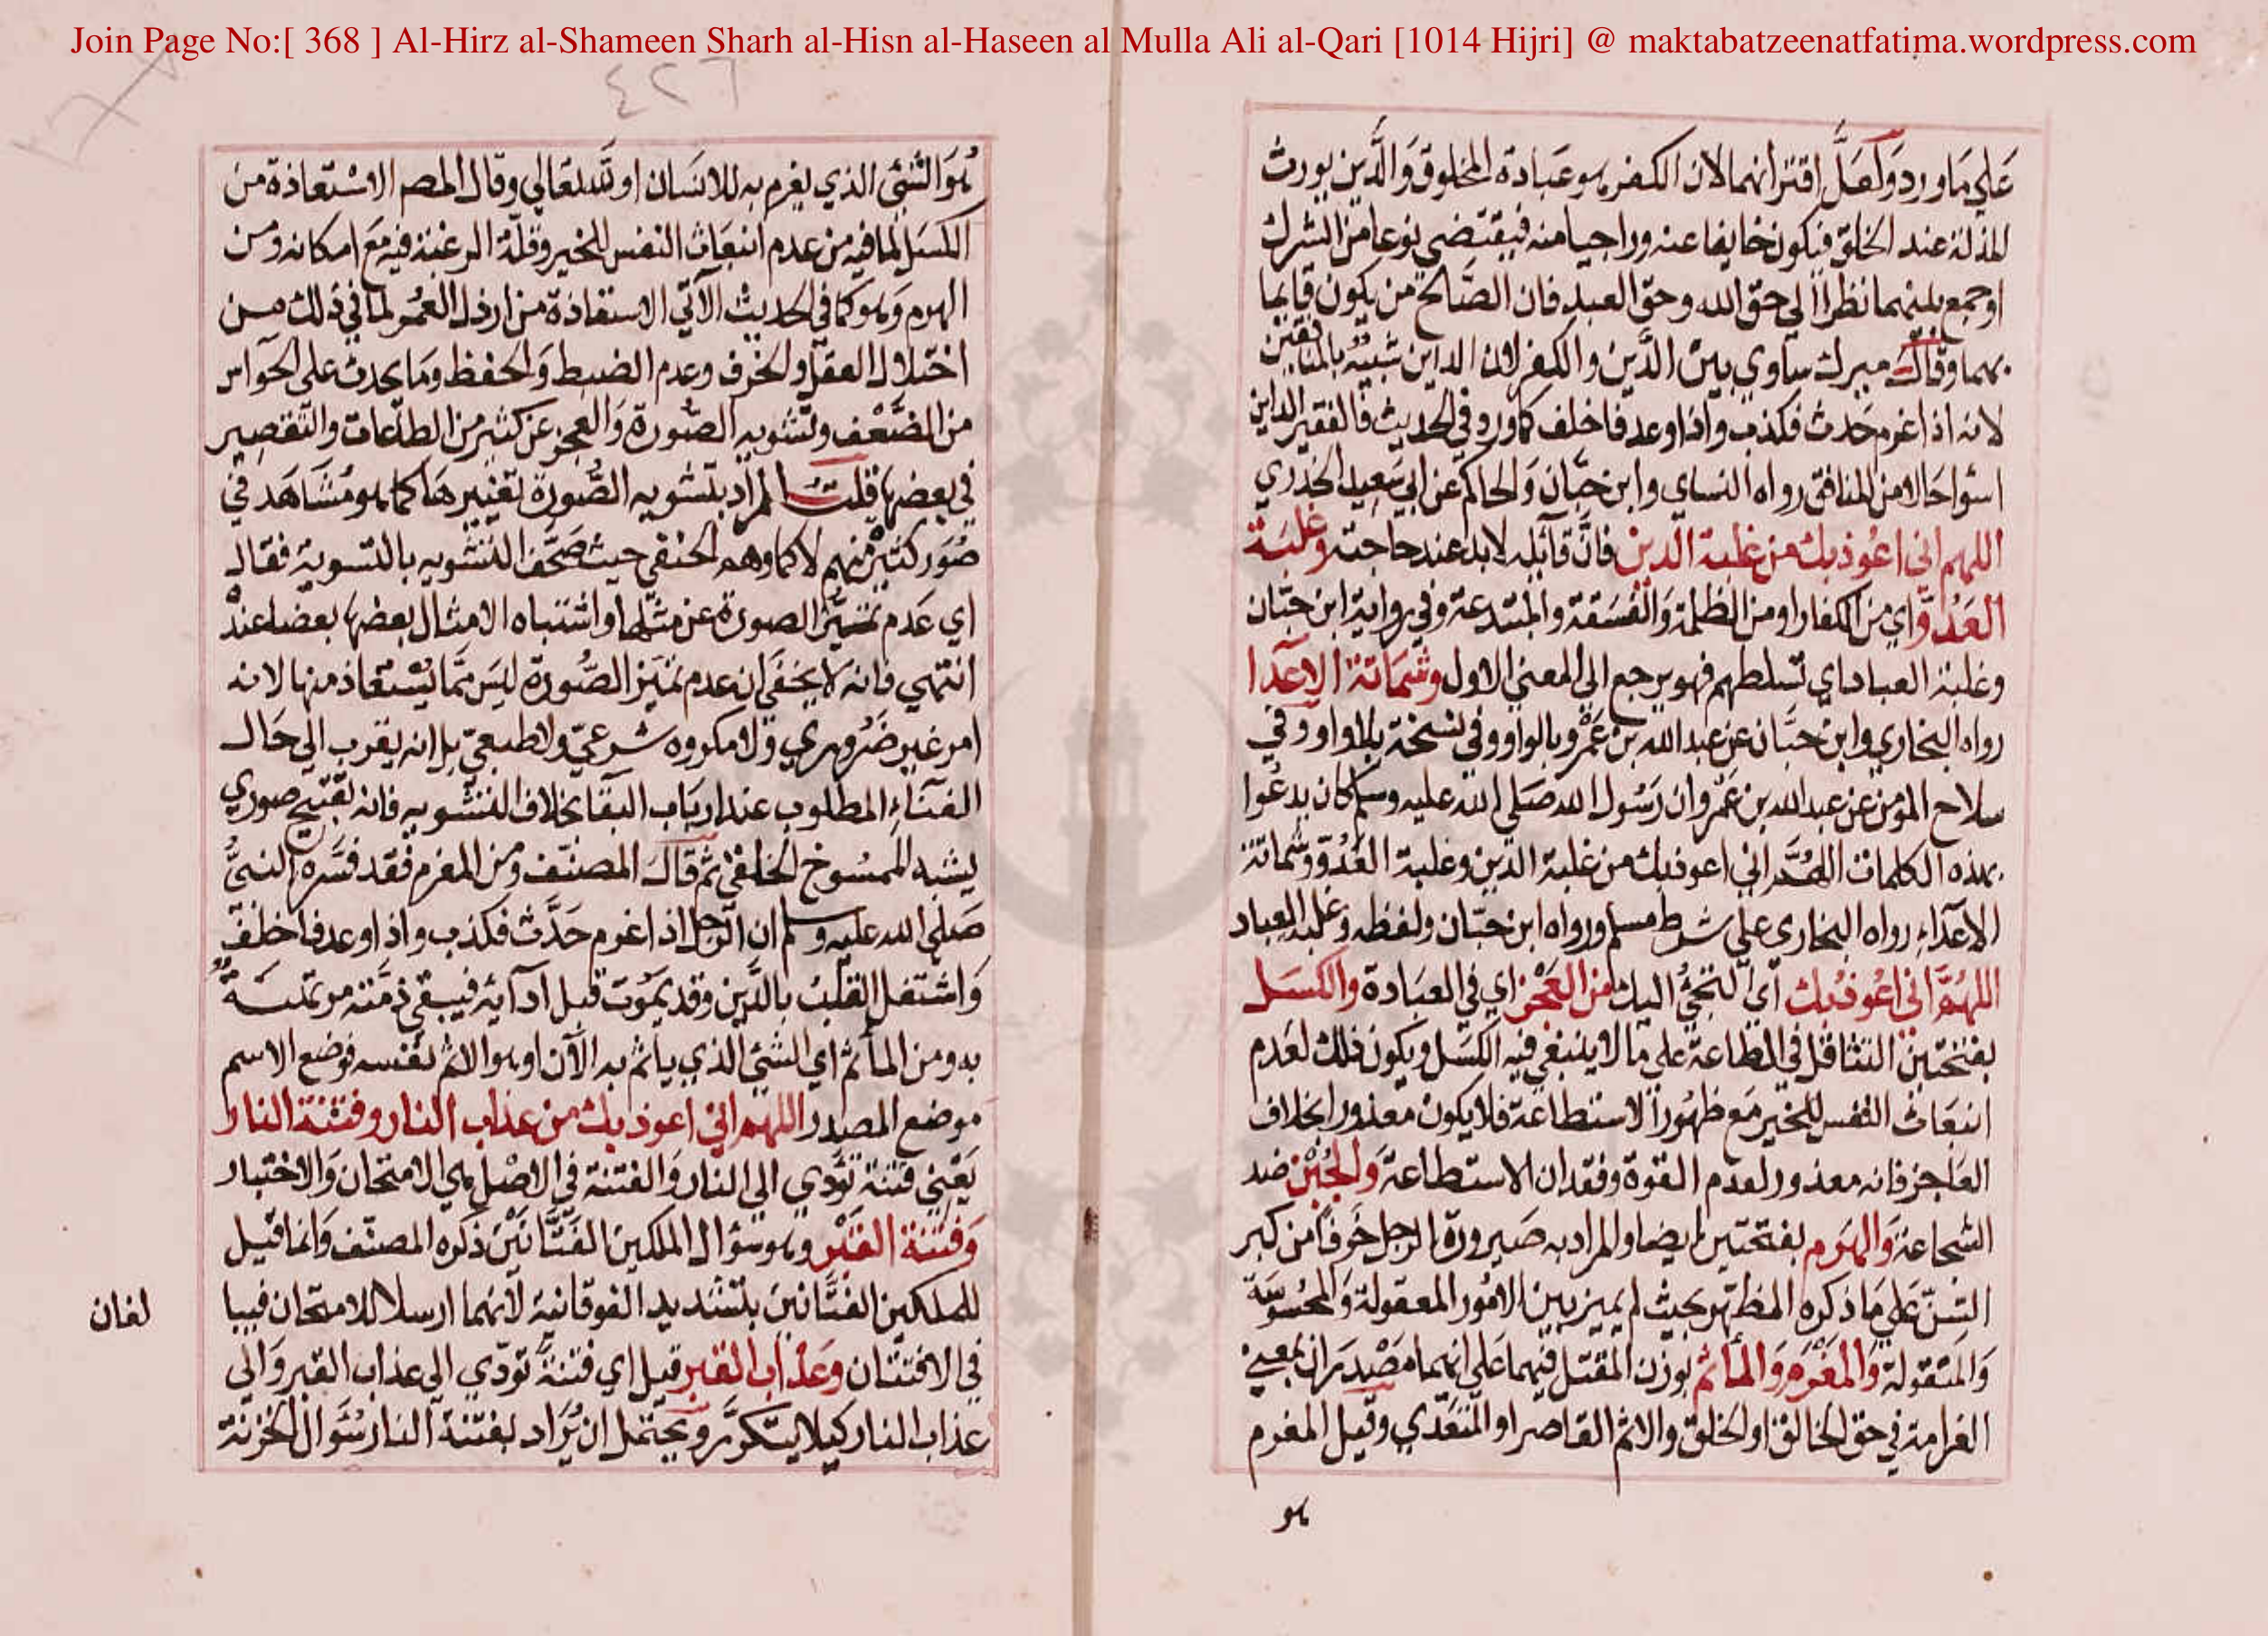 Join Page No:[ 368 ] Al-Hirz al-Shameen Sharh al-Hisn al-Haseen al Mulla Ali al-Qari [1014 Hijri] @ maktabatzeenatfatima.wordpress.com
علي ما ورد ولعل اقترانهما لان الكفر هو عبادة المخلوق والدين يورث
المذلة عند الخلق فيكون خايفا عنه وراجيا منه فيقتضي نوعا من الشرك
او جمع بينهما نظرا الي حق الله وحق العبد فان الصالح من يكون قايما
بهما وقال ميرك ساوي بين الدين والكفر لان الداين شبيه بالمنافقين
لانه اذا غرم حدث فكذب واذا وعد فاخلف كما ورد في الحديث فالفقير الداين
اسوا حالا من المنافق رواه النساي وابن حبان والحاكم عن ابي سعيد الخدري
اللهم اني اعوذ بك من غلبة الدين فان قائله لابد عند حاجته وغلبة
العدو اي من الكفار او من الظلمة والفسقة والمبتدعة وفي رواية ابن حبان
وغلبة العباد اي تسلطهم فهو يرجع الي المعني الاول وشماتة الاعدا
رواه البخاري وابن حبان عن عبد الله بن عمرو بالواو وفي نسخة بلا واو وفي
سلاح المومن عن عبد الله بن عمرو ان رسول الله صلي الله عليه وسلم كان يدعوا
بهذه الكلمات اللهم اني اعوذ بك من غلبة الدين وغلبة العدو وشماتة
الاعداء رواه البخاري علي شرط مسلم ورواه ابن حبان ولفظه وغلبة العباد
اللهم اني اعوذ بك اي التجئ اليك من العجز اي في العبادة والكسل
بفتحتين التثاقل في الطاعة علي ما لا ينبغي فيه الكسل ويكون ذلك لعدم
انبعاث النفس للخير مع ظهور الاستطاعة فلا يكون معذورا بخلاف
العاجز فانه معذور لعدم القوة وفقدان الاستطاعة والجبن ضد
الشجاعة والهرم بفتحتين ايضا والمراد به صيرورة الرجل خرفا من كبر
السن علي ما ذكره المظهر بحيث لم يميز بين الامور المعقولة والمحسوسة
والمنقولة والمغرم والماثم بوزن المقتل فيهما علي انهما مصدران بمعني
الغرامة في حق الخالق او الخلق والاثم القاصر او المتعدي وقيل المغرم
هو
٤٢٦
هو الشئ الذي يغرم به للانسان او لله تعالي وقال المص الاستعاذة من
الكسل لما فيه من عدم انبعاث النفس للخير وقلة الرغبة فيه مع امكانه ومن
الهرم وهو كما في الحديث الاتي الاستعاذة من ارذل العمر لما في ذلك من
اختلال العقل والخرف وعدم الضبط والحفظ وما يحدث علي الحواس
من الضعف وتشويه الصورة والعجز عن كثير من الطاعات والتقصير
في بعضها قلت المراد بتشويه الصورة تغييرها كما هو مشاهد في
صور كثير منهم لا كما وهم الحنفي حيث صحف التشويه بالتسوية فقال
اي عدم تميز الصورة عن مثلها واشتباه الامثال بعضها بعضا عنده
انتهي فانه لا يخفي ان عدم تميز الصورة ليس مما يستعاذ منها لانه
امر غير ضروري ولا مكروه شرعي ولا طبعي بل انه يقرب الي حال
الفناء المطلوب عند ارباب البقا بخلاف التشويه فانه تقبيح صوري
يشبه الممسوخ الخلقي ثم قال المصنف ومن المغرم فقد فسره النبي
صلي الله عليه وسلم ان الرجل اذا غرم حدث فكذب واذا وعد فاخلف
واشتغل القلب بالدين وقد يموت قبل ادايه فيبقي ذمته مرتهنة
به ومن الماثم اي الشئ الذي ياثم به الان او هو الاثم نفسه فوضع الاسم
موضع المصدر اللهم اني اعوذ بك من عذاب النار وفتنة النار
يعني فتنة تؤدي الي النار والفتنة في الاصل هي الامتحان والاختبار
وفتنة القبر وهو سؤال الملكين الفتانين ذكره المصنف وانما قيل
للملكين الفتانين بتشديد الفوقانية لانهما ارسلا للامتحان فيبا
لغان
في الافتتان وعذاب القبر قيل اي فتنة تؤدي الي عذاب القبر والي
عذاب النار كيلا يتكرر ويحتمل ان يراد بفتنة النار سؤال الخزنة